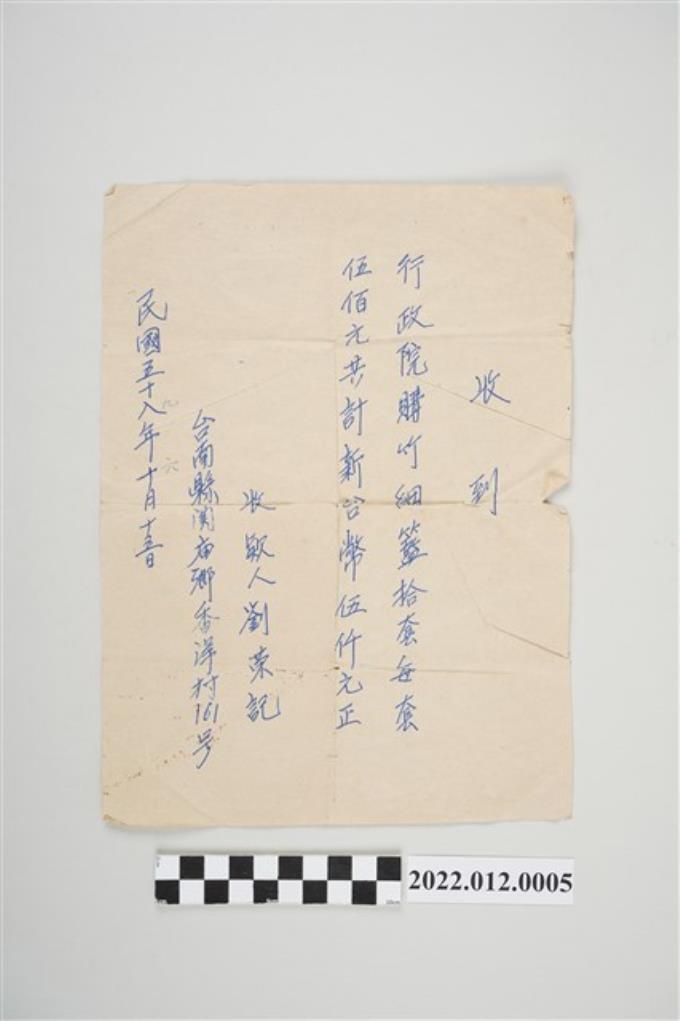 收到
行政院購竹細籃拾套每套
伍佰元共計新台幣伍仟元正
收款人劉荣記
台南縣関庙鄉香洋村161号
民國五十八年十月十三日
2022.012.0005